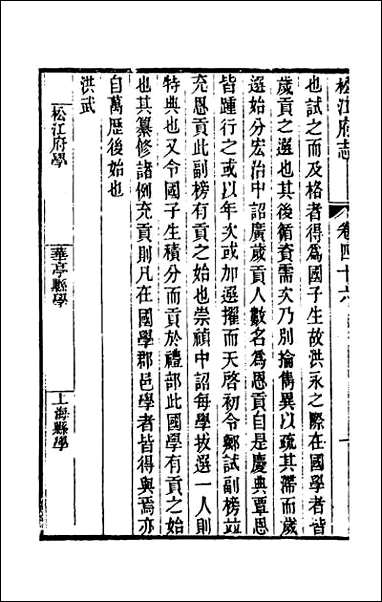 松江府志
卷四十六
也試之而及格者得為國子生故洪永之際在國學者皆
歲貢之選也其後循資需次乃別掄儁異以疏其滯而歲
選始分宏治中詔廣歲貢人數名為恩貢自是慶典覃恩
皆踵行之或以年次或加選擢而天啓初令鄉試副榜並
充恩貢此副榜有貢之始也崇禎中詔每學拔選一人則
特典也又令國子生積分而貢於禮部此國學有貢之始
也其纂修諸例充貢則凡在國學郡邑學者皆得與焉亦
自萬歷後始也
洪武
松江府學
華亭縣學
上海縣學